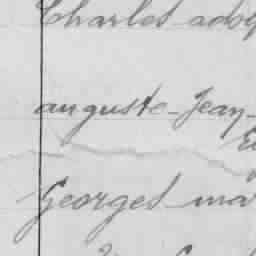 Charles adol
auguste-Jean-
Georges ma